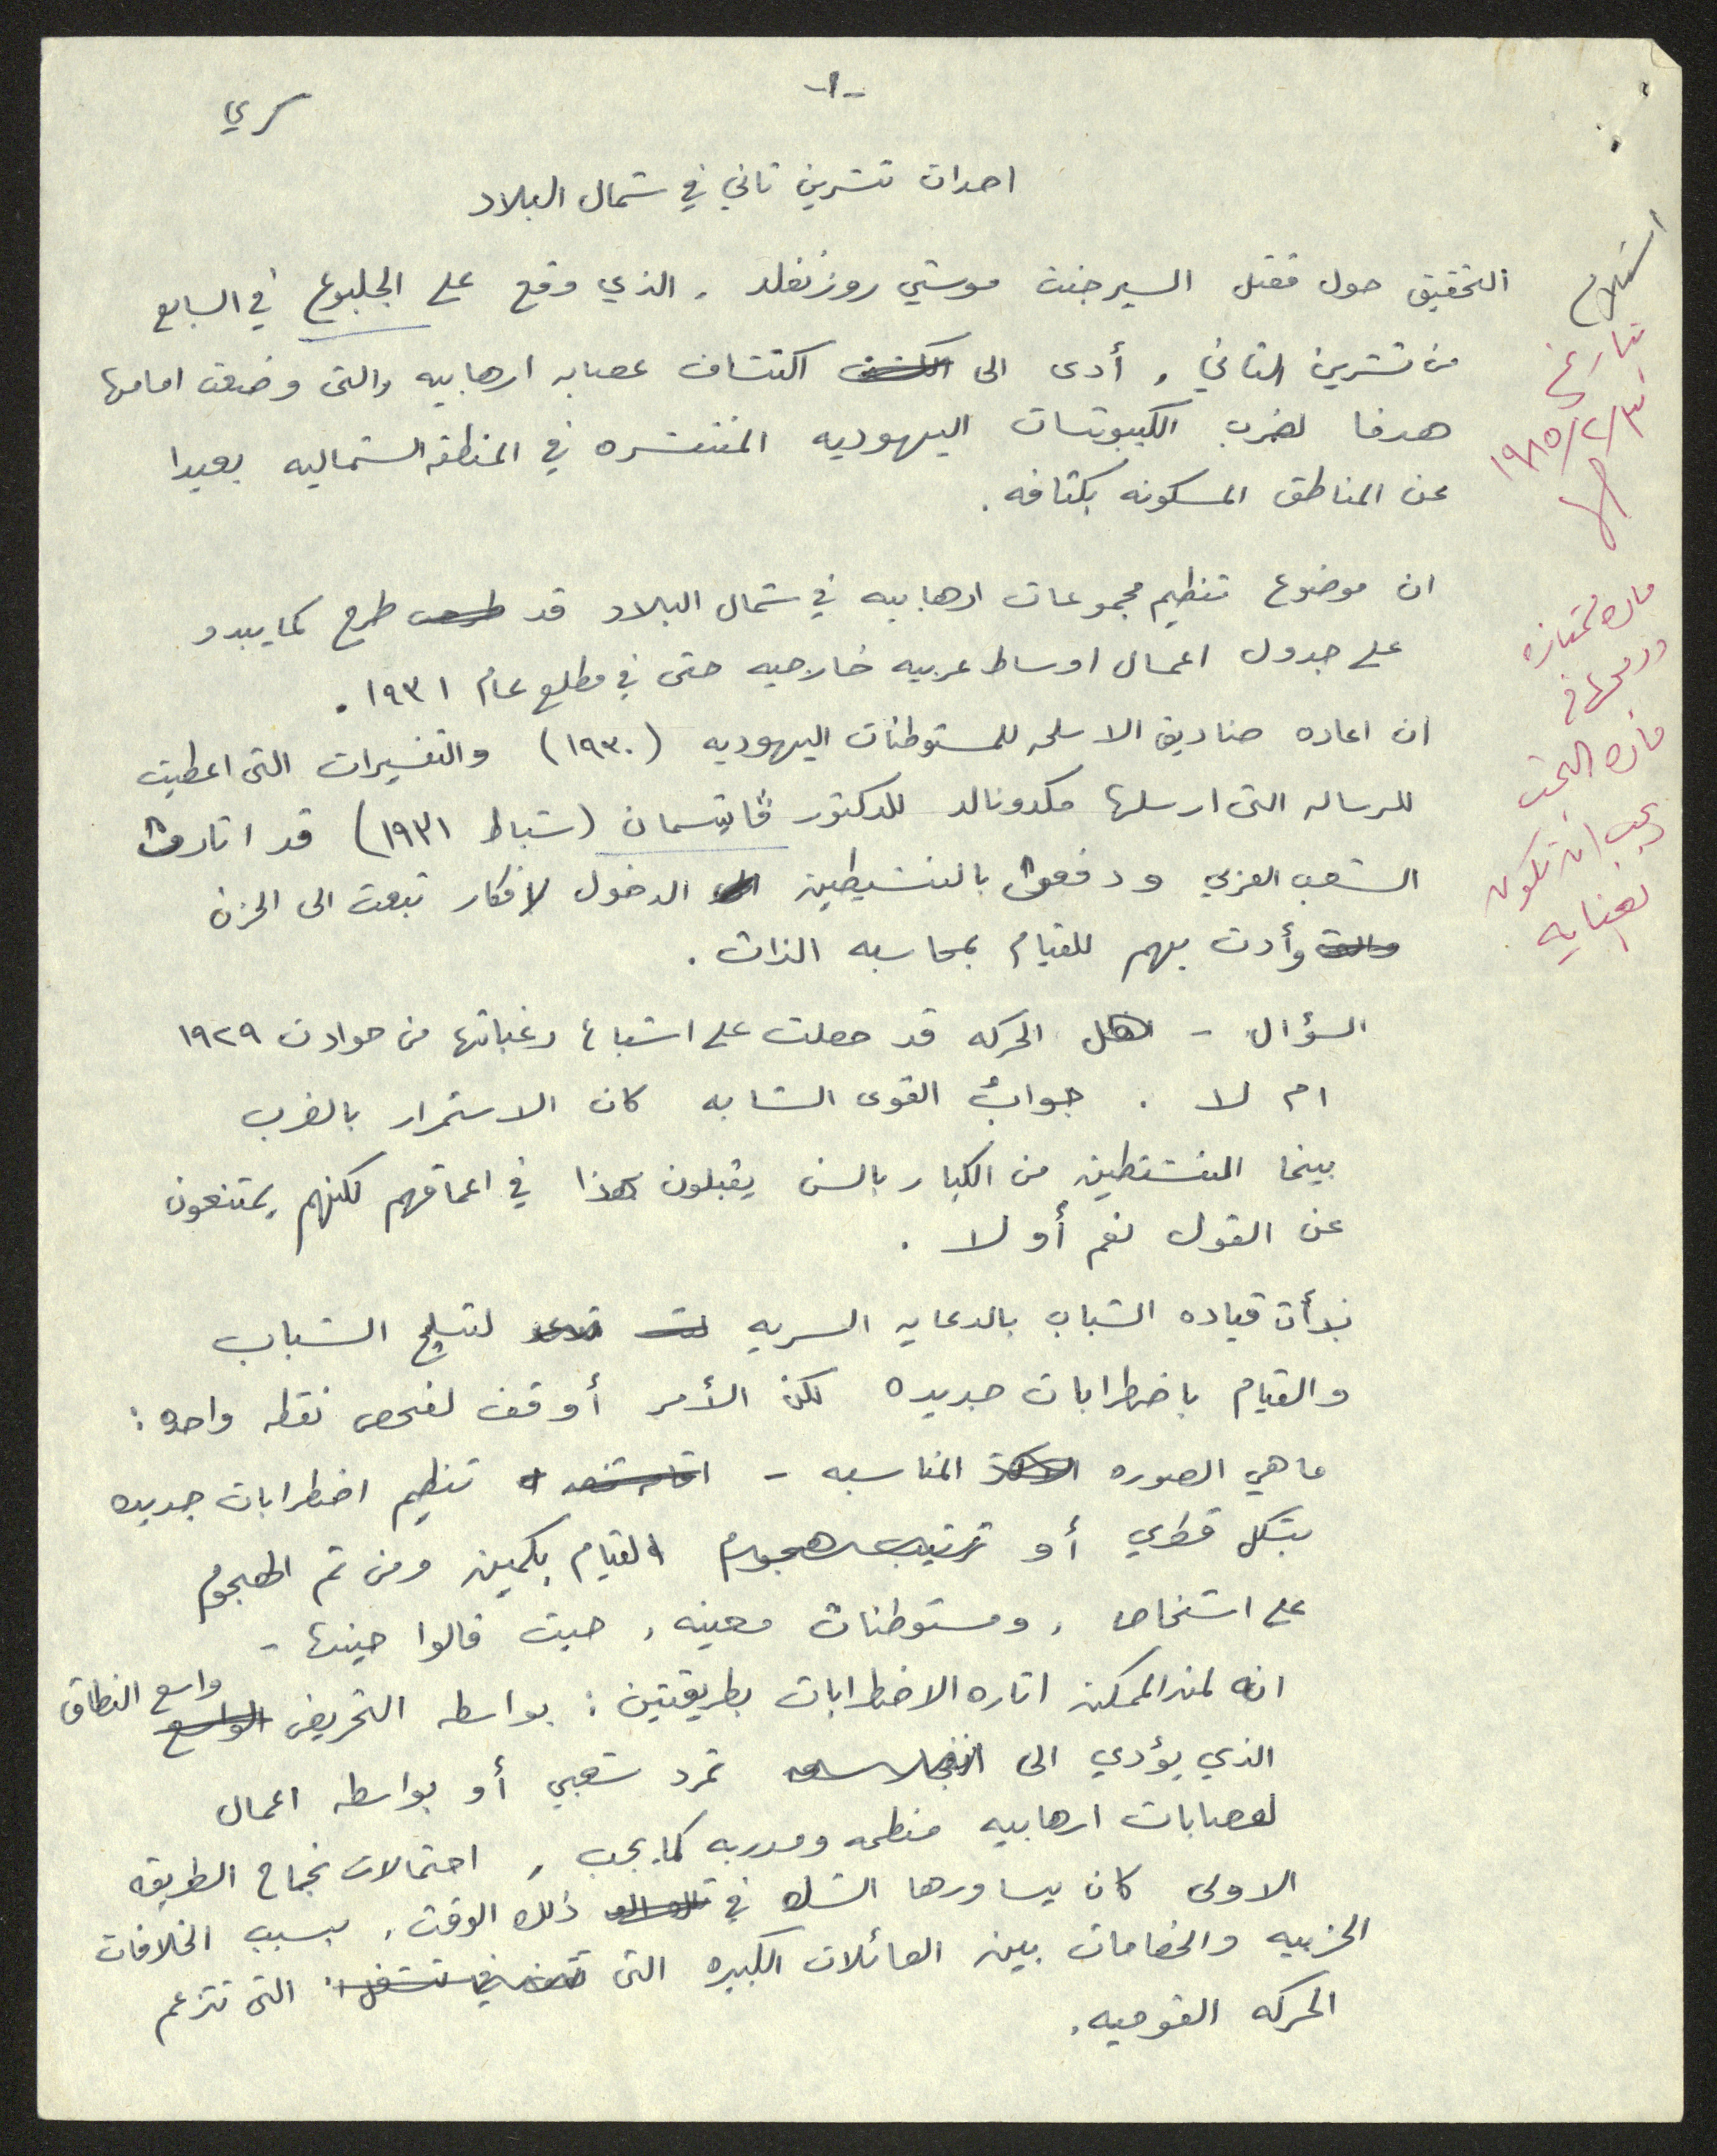 -١-
سري
احداث تشرين ثاني في شمال البلاد
التحقيق حول مقتل السيرجنت موشي روزنفلد ، الذي وقع على الجلبوع في السابع
من تشرين الثاني ، أدى الى اكتشاف عصابه ارهابيه والتى وضعت امامها
هدفا لضرب الكيبوتسات اليهوديه المنتشره في المنطقه الشماليه بعيدا
عن المناطق المسكونه بكثافه .
ان موضوع تنظيم مجموعات ارهابيه في شمال البلاد قد طرح كما يبدو
على جدول اعمال اوساط عربيه خارجيه حتى في مطلع عام ١٩٣١ .
ان اعاده صناديق الاسلحه للمستوطنات اليهوديه (١٩٣٠) والتفسيرات التى اعطيت
للرساله التى ارسلها مكدونالد للدكتور ڤايتسمان (شباط ١٩٣١) قد اثارت
الشعب العربي ودفعت بالنشيطين الدخول لافكار تبعث الى الحزن
وأدت بهم للقيام بمحاسبه الذات .
السؤال - هل الحركه قد حصلت على اشباع رغباتها من حوادث ١٩٢٩
ام لا . جواب القوى الشابه كان الاستمرار بالضرب
بينما المنشطين من الكبار بالسن يقبلون هذا في اعماقهم لكنهم يمتنعون
عن القول نعم أو لا .
بدأت قياده الشباب بالدعايه السريه لتسليح الشباب
والقيام باضطرابات جديده لكن الأمر أوقف لفحص نقطه واحده :
ما هي الصوره المناسبه - تنظيم اضطرابات جديده
بشكل قطري أو القيام بكمين ومن ثم الهجوم
على اشخاص ، ومستوطنات معينه ، حيث قالوا حينها -
انه لمن الممكن اثاره الاضطرابات بطريقتين : بواسطه التحريض واسع النطاق
الذي يؤدي الى تمرد شعبي أو بواسطه اعمال
لعصابات ارهابيه منظمه ومدربه كما يجب ، احتمالات نجاح الطريقه
الاولى كان يساورها الشك في ذلك الوقت ، بسبب الخلافات
الحزبيه والخصامات بين العائلات الكبيره التى التى تتزعم
الحركه القوميه .
استلام
بتاريخ
١٩٨٥/٢/٣
ماده ممتازه
ماده البحث
يجب ان تكون
بعنايه